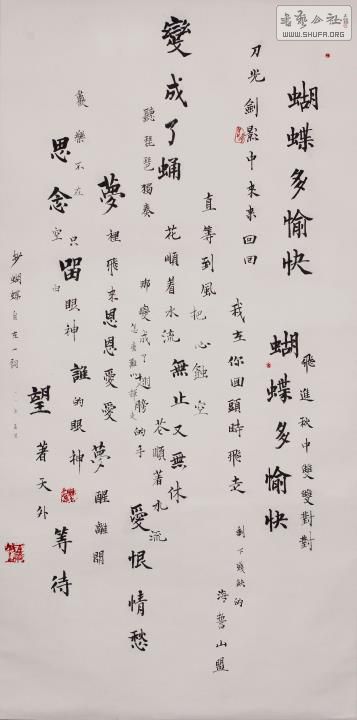 蝴蝶多愉快
刀光劍影中來來回回
蝴蝶多愉快
飛進秋中雙雙對對
我在你回頭時飛走
剩下殘缺的
海誓山盟
直等到風
把心蝕空
變成了蛹
花順着水流
無止又無休
聽琵琶獨奏
那變成了翅膀的手
花順著水流
愛恨情愁
夢裡飛來恩恩愛愛
夢醒離開
歡樂不在
只留眼神
誰的眼神
思念空白
等待
望著天外
抄蝴蝶自在一詞
書藝公社
WWW.SHUFA.ORG